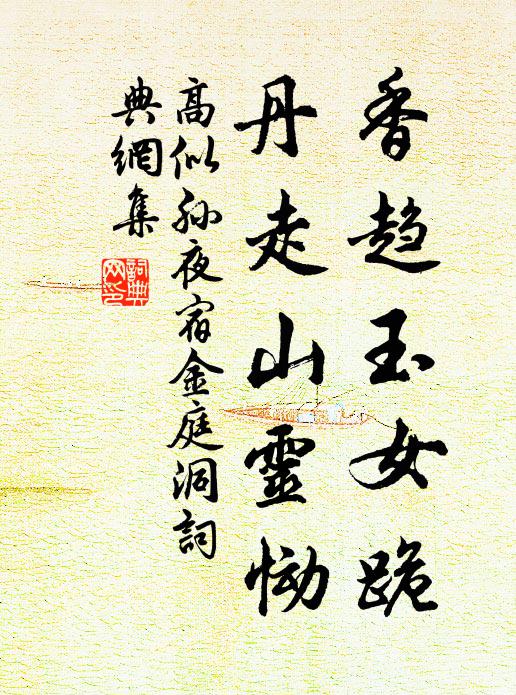 香趋玉女跪
丹走山靈恸
高似孙夜宿金庭洞詞
典網集
詞典
网印